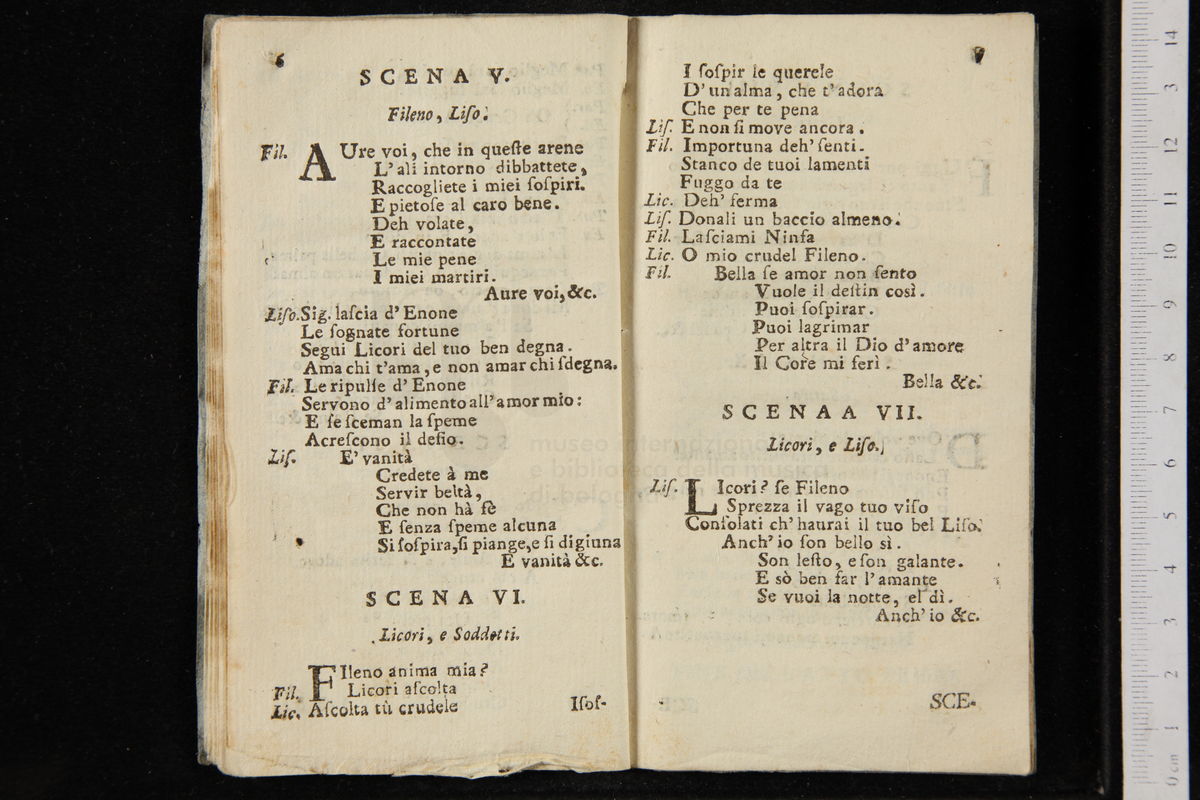 6
SCENA V.
Fileno, Liſo.
Fil. AUre voi, che in queſte arene
L' ali intorno dibbattete,
Raccogliete i miei ſoſpiri.
E pietoſe al caro bene.
Deh volate,
E raccontate
Le mie pene
I miei martiri.
Aure voi, &c.
Liſo. Sig. laſcia d' Enone
Le ſognate fortune
Segui Licori del tuo ben degna.
Ama chi t'ama, e non amar chi ſdegna.
Fil. Le ripulſe d' Enone
Servono d' alimento all' amor mio:
E ſe ſceman la ſpeme
Acreſcono il deſio.
Liſ. E' vanità
Credete à me
Servir beltà,
Che non hà fè
E ſenza ſpeme alcuna
Si ſoſpira, ſi piange, e ſi digiuna
E vanità &c.
SCENA VI.
Licori, e Soddetti.
FIleno anima mia?
Fil. Licori aſcolta
Lic. Aſcolta tù crudele
Iſoſ-
7
I ſoſpir le querele
D' un' alma, che t' adora
Che per te pena
Liſ. E non ſi move ancora.
Fil. Importuna deh' ſenti.
Stanco de tuoi lamenti
Fuggo da te
Lic. Deh' ferma
Liſ. Donali un baccio almeno.
Fil. Laſciami Ninfa
Lic. O mio crudel Fileno.
Fil. Bella ſe amor non ſento
Vuole il deſtin così.
Puoi ſoſpirar.
Puoi lagrimar
Per altra il Dio d' amore
Il Core mi ferì.
Bella &c.
SCENAA VII.
Licori, e Liſo.
Liſ. LIcori? ſe Fileno
Sprezza il vago tuo viſo
Conſolati ch' haurai il tuo bel Liſo.
Anch' io ſon bello sì.
Son leſto, e ſon galante.
E sò ben far l' amante
Se vuoi la notte, el dì.
Anch' io &c.
SCE-
museo internazionale
e biblioteca della musica
di bologna
0 cm 1 2 3 4 5 6 7 8 9 10 11 12 3 14